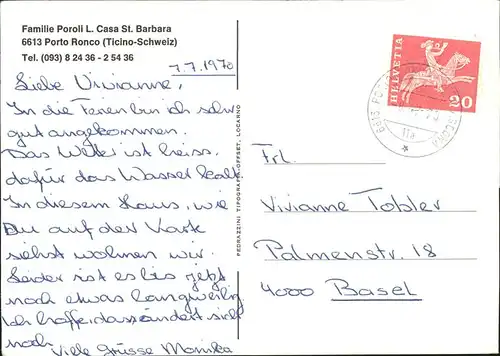 Familie Poroli L. Casa St. Barbara
6613 Porto Ronco (Ticino-Schweiz)
Tel. (093) 8 24 36 - 2 54 36
7.7.1970
Liebe Vivianne,
In die Ferien bin ich sehr
gut angekommen.
Das Wetter ist heiss,
dafür das Wasser kalt.
In diesem Haus, wie
Du auf der Karte
siehst wohnen wir.
Leider ist es bis jetzt
noch etwas langweilig
Ich hoffe, dass ändert sich
noch.
Viele Grüsse Monika
FEDRAZZINI TIPOGRAFIA-OFFSET, LOCARNO
HELVETIA
20
6613
RONCO
Frl.
Vivianne Tobler
Palmenstr. 18
4000 Basel